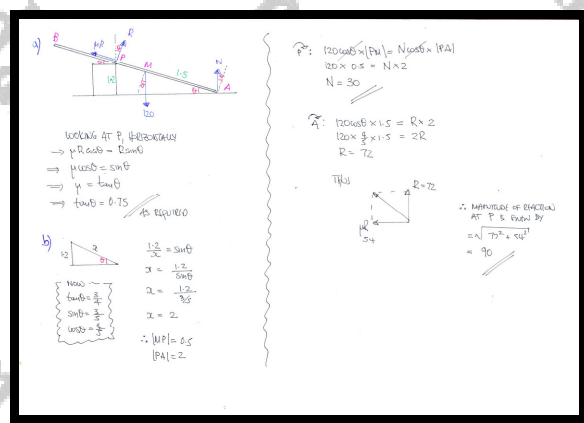 a)
B
μR
R
P
M
1.5
N
1.2
θ
A
120
LOOKING AT P, HORIZONTALLY
⇒ μRcosθ = Rsinθ
⇒ μcosθ = sinθ
⇒ μ = tanθ
⇒ tanθ = 0.75
AS REQUIRED
b)
1.2
x
θ
NOW
tanθ = 3/4
sinθ = 3/5
cosθ = 4/5
1.2/x = sinθ
x = 1.2/sinθ
x = 1.2/3/5
x = 2
∴ |MP| = 0.5
|PA| = 2
P: 120cosθ × |PM| = Ncosθ × |PA|
120 × 0.5 = N × 2
N = 30
A: 120cosθ × 1.5 = R × 2
120 × 4/5 × 1.5 = 2R
R = 72
THUS
R=72
μR
54
∴ MAGNITUDE OF REACTION
AT P IS GIVEN BY
= √72² + 54²
= 90